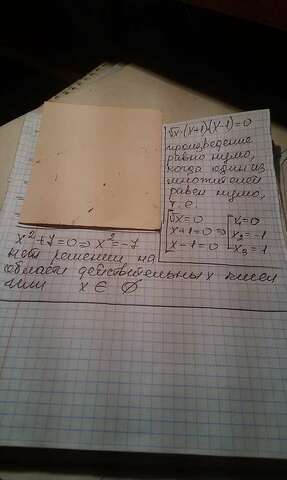 √x·(x+1)(x-1)=0
произведение
равно нулю,
когда один из
множителей
равен нулю,
т. е.
√x=0
x+1=0 ⇒
x-1=0
x₁=0
x₂=-1
x₃=1
x²+7=0 ⇒ x²=-7
нет решений на
области действительных чисел
или x ∈ ∅